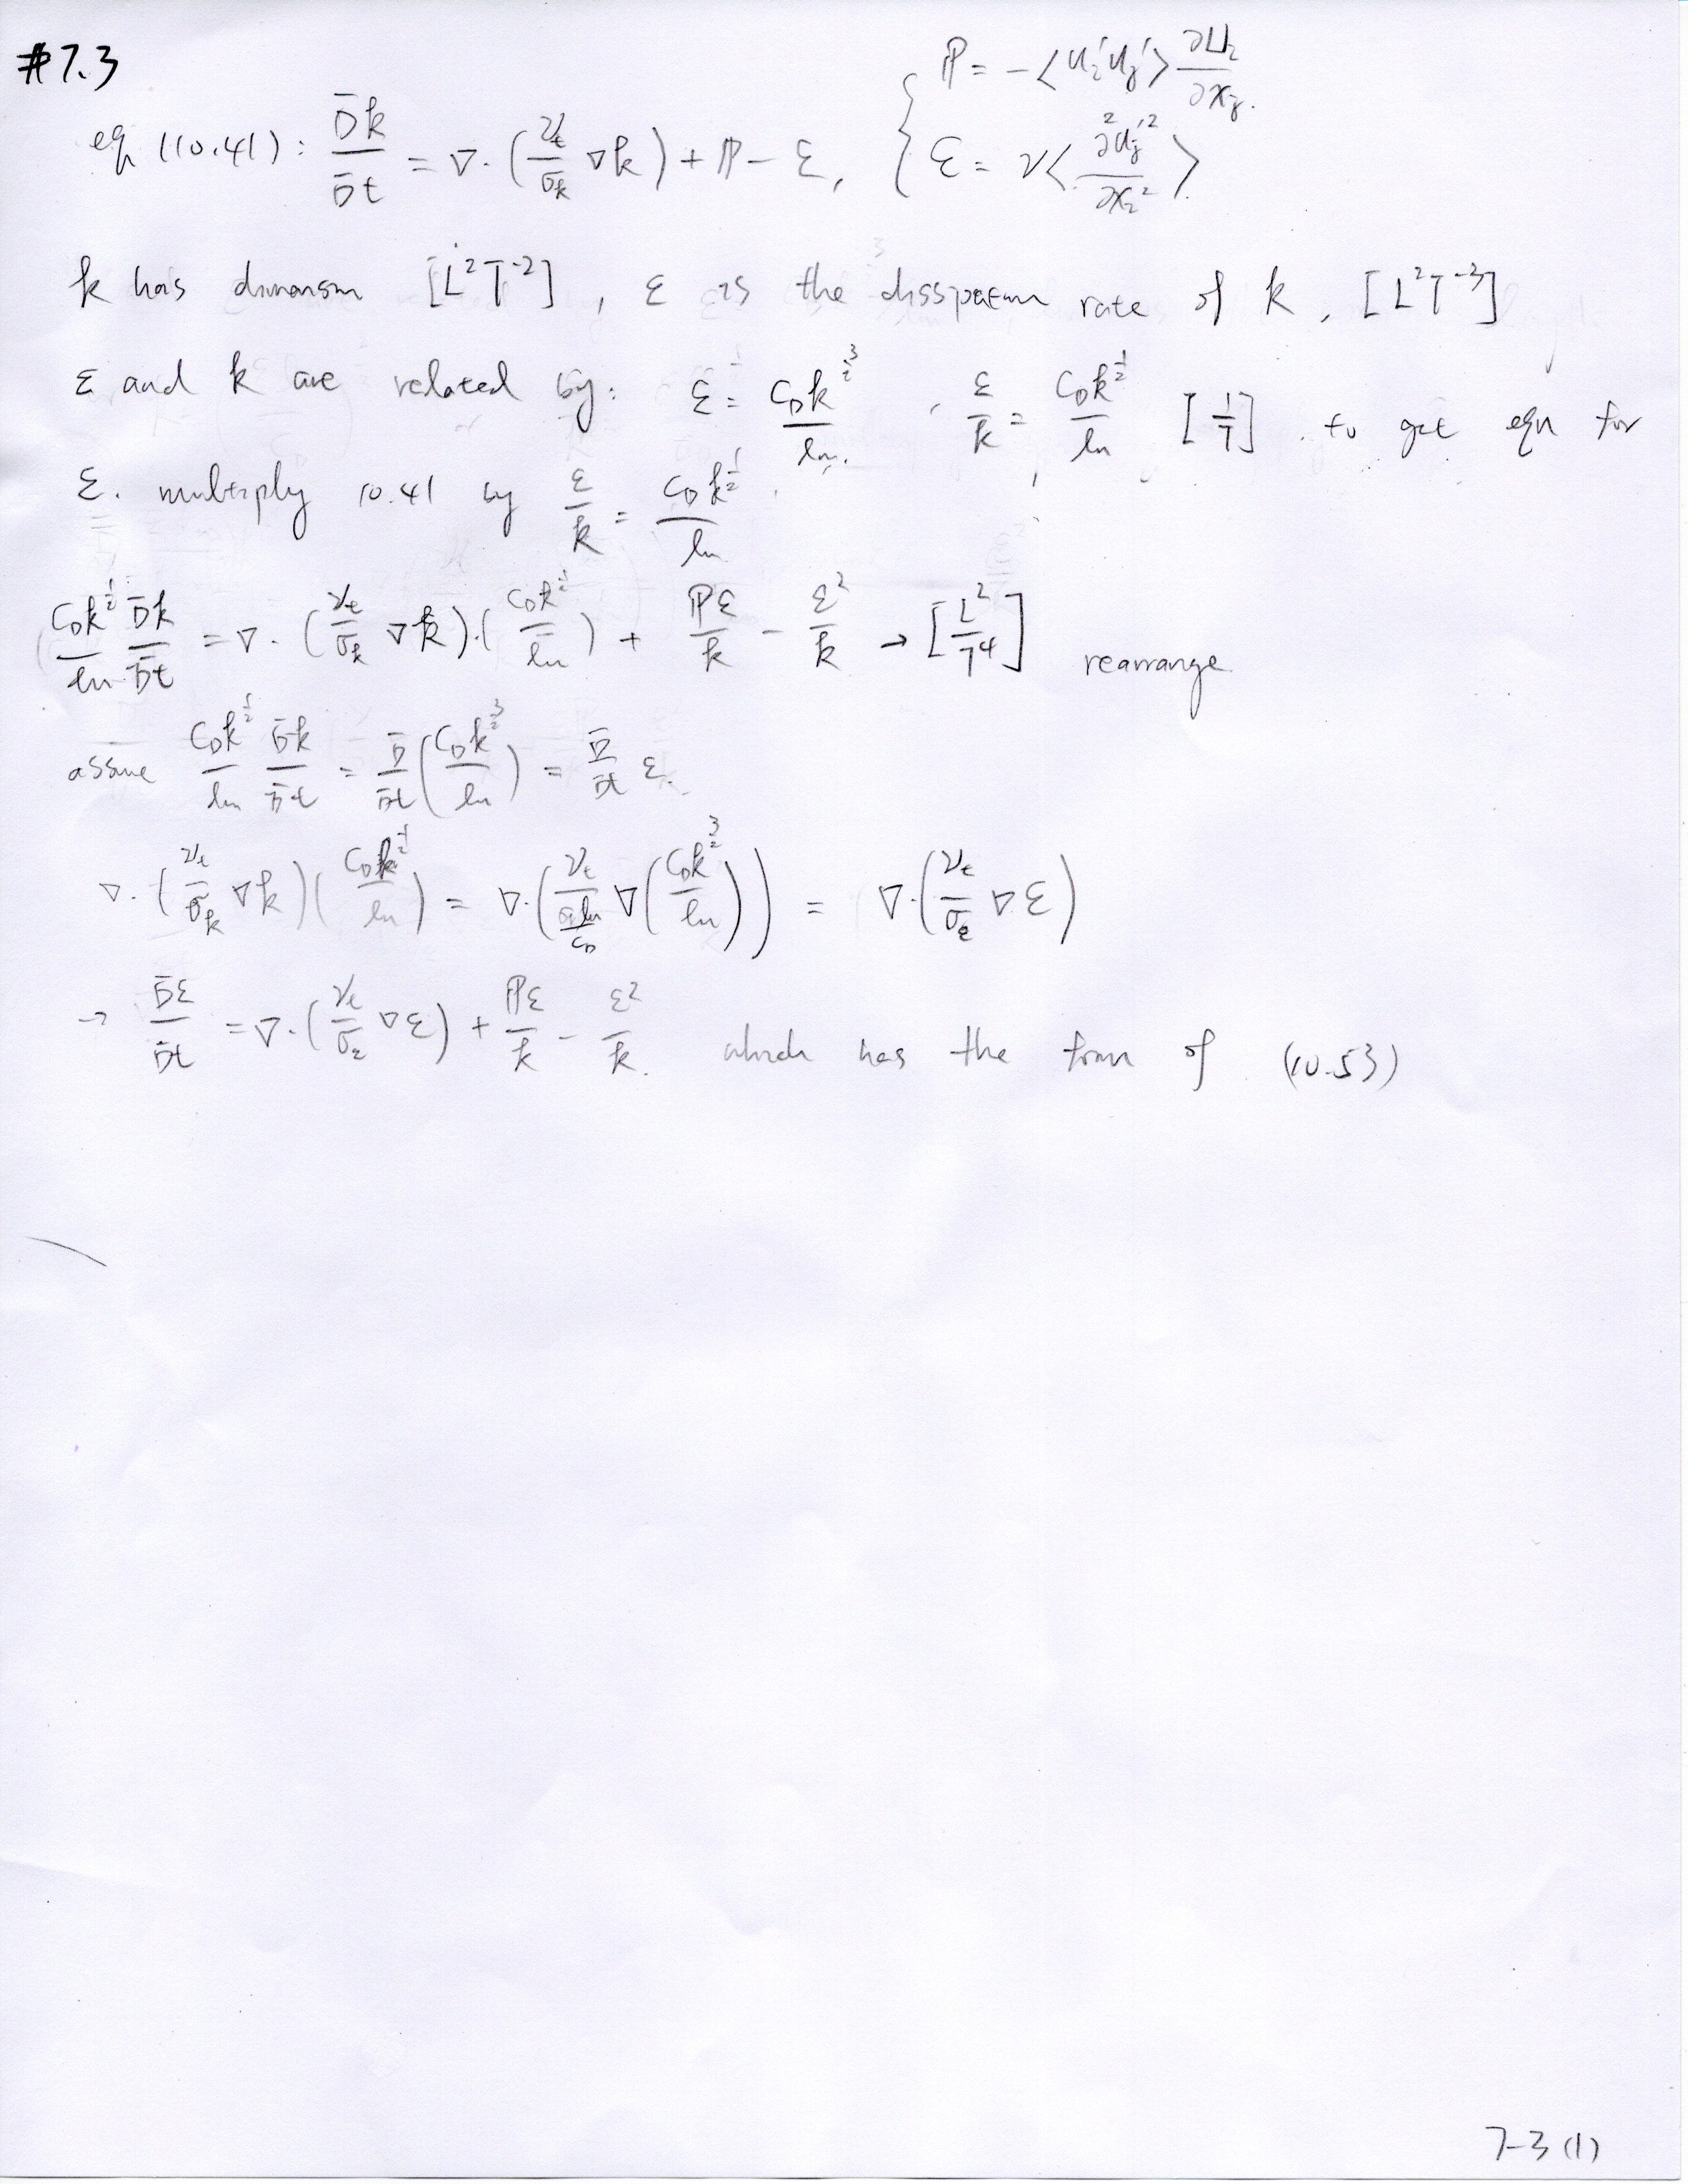 #7.3
P = -<u_i'u_j'> ∂U_i/∂x_j.
eq (10.41): D̄k/D̄t = ∇·(ν_t/σ_k ∇k) + P - ε, { ε = ν<∂²u_j'²/∂x_i²>
k has dimension [L²T⁻²], ε is the dissipation rate of k, [L²T⁻³]
ε and k are related by: ε = C_D k^(3/2)/l_m. , ε/k = C_D k^(1/2)/l_m [1/T]. to get eqn for
ε. multiply 10.41 by ε/k = C_D k^(1/2)/l_m.
C_D k^(1/2)/l_m D̄k/D̄t = ∇·(ν_t/σ_k ∇k)·(C_D k^(1/2)/l_m) + Pε/k - ε²/k → [L²/T⁴] rearrange
assume C_D k^(1/2)/l_m D̄k/D̄t = D̄/D̄t (C_D k^(3/2)/l_m) = D̄/D̄t ε.
∇·(ν_t/σ_k ∇k)(C_D k^(1/2)/l_m) = ∇·(ν_t/(σ_k l_m/C_D) ∇(C_D k^(3/2)/l_m)) = ∇·(ν_t/σ_ε ∇ε)
→ D̄ε/D̄t = ∇·(ν_t/σ_ε ∇ε) + Pε/k - ε²/k. which has the form of (10.53)
7-3 (1)